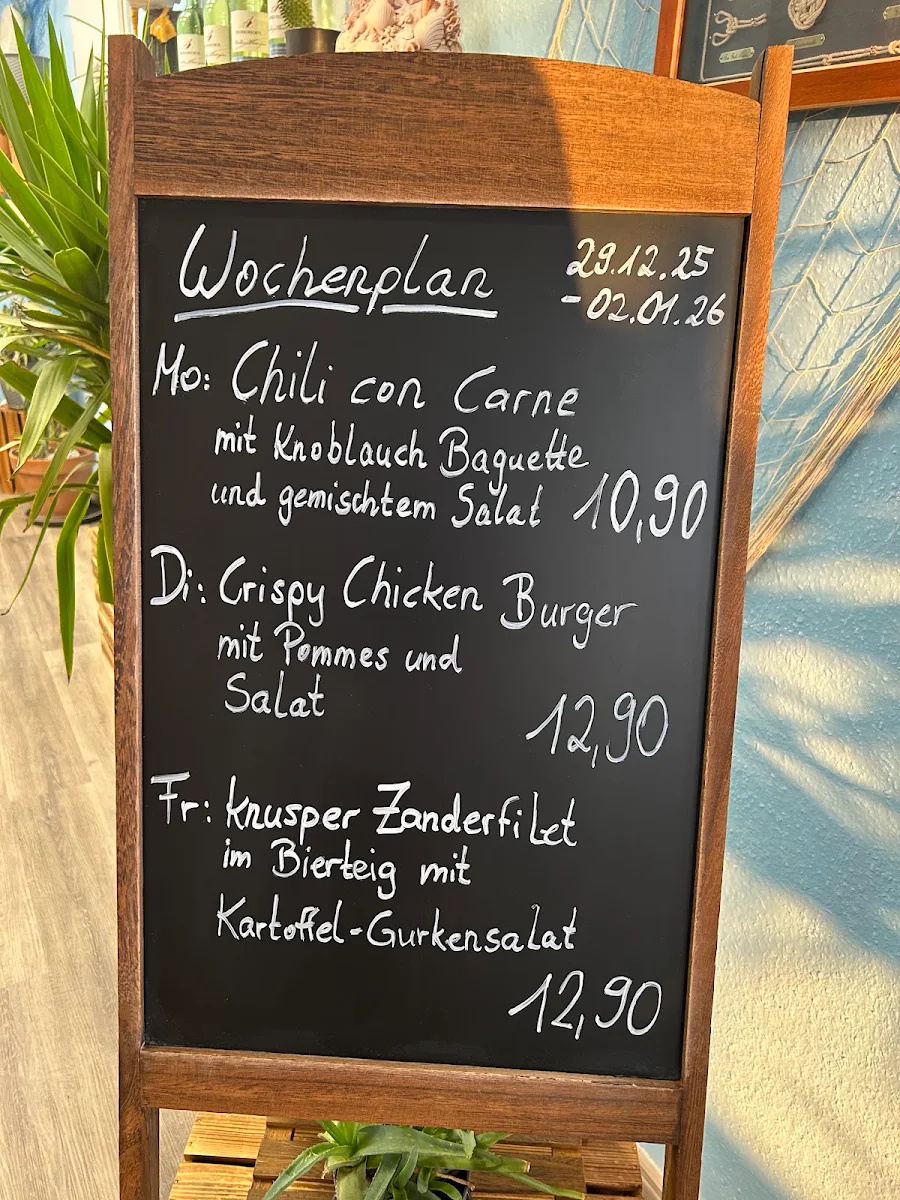 Wochenplan
29.12.25
- 02.01.26
Mo: Chili con Carne
mit Knoblauch Baguette
und gemischtem Salat 10,90
Di: Crispy Chicken Burger
mit Pommes und
Salat
12,90
Fr: Knusper Zanderfilet
im Bierteig mit
Kartoffel-Gurkensalat
12,90